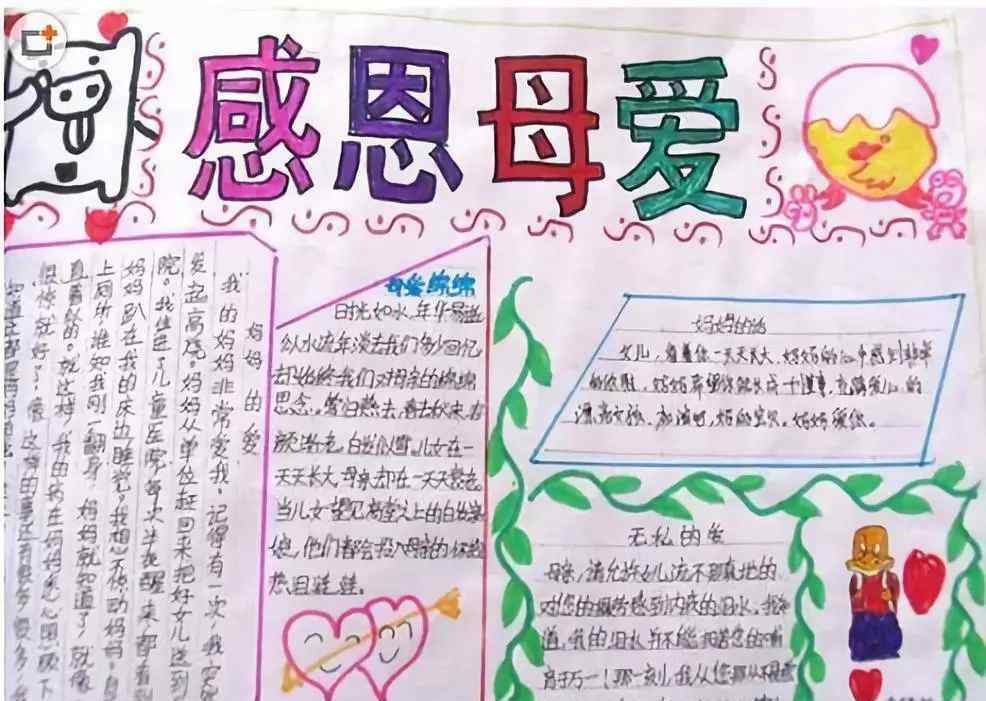 感恩母爱
妈妈的爱
我的妈妈非常爱我。记得有一次，我突
发起高烧。妈妈从单位赶回来把好女儿送到
院。我住进了儿童医院，每次半夜醒来，都看到
妈妈趴在我的床边睡觉。我想不惊动妈妈，自
上厕所，谁知我刚一翻身，妈妈就知道了，就像
直看似的。就这样，我的病在妈妈悉心照顾下
很快就好了。像这样的事还有很多很多，
母爱绵绵
时光如水，年华易逝
似水流年淡去我们多少回忆
却始终我们对母亲的绵绵
思念。寒往暑去，春去秋来，
颜渐老，白发似雪。儿女在一
天天长大，母亲却在一天天老
当儿女望见高堂之上的白发亲
娘，他们都会投入母亲的怀抱
热泪
妈妈的话
女儿，看着你一天天长大，妈妈的心中感到非常
的欣慰，妈妈希望你能长成一个健康，
漂亮女孩，加油吧，妈的宝贝，妈妈爱你。
无私的爱
母亲，请允许女儿流不间真地的
对您的
道，我的泪水并不能
育于万一！那一刻，我从您那从